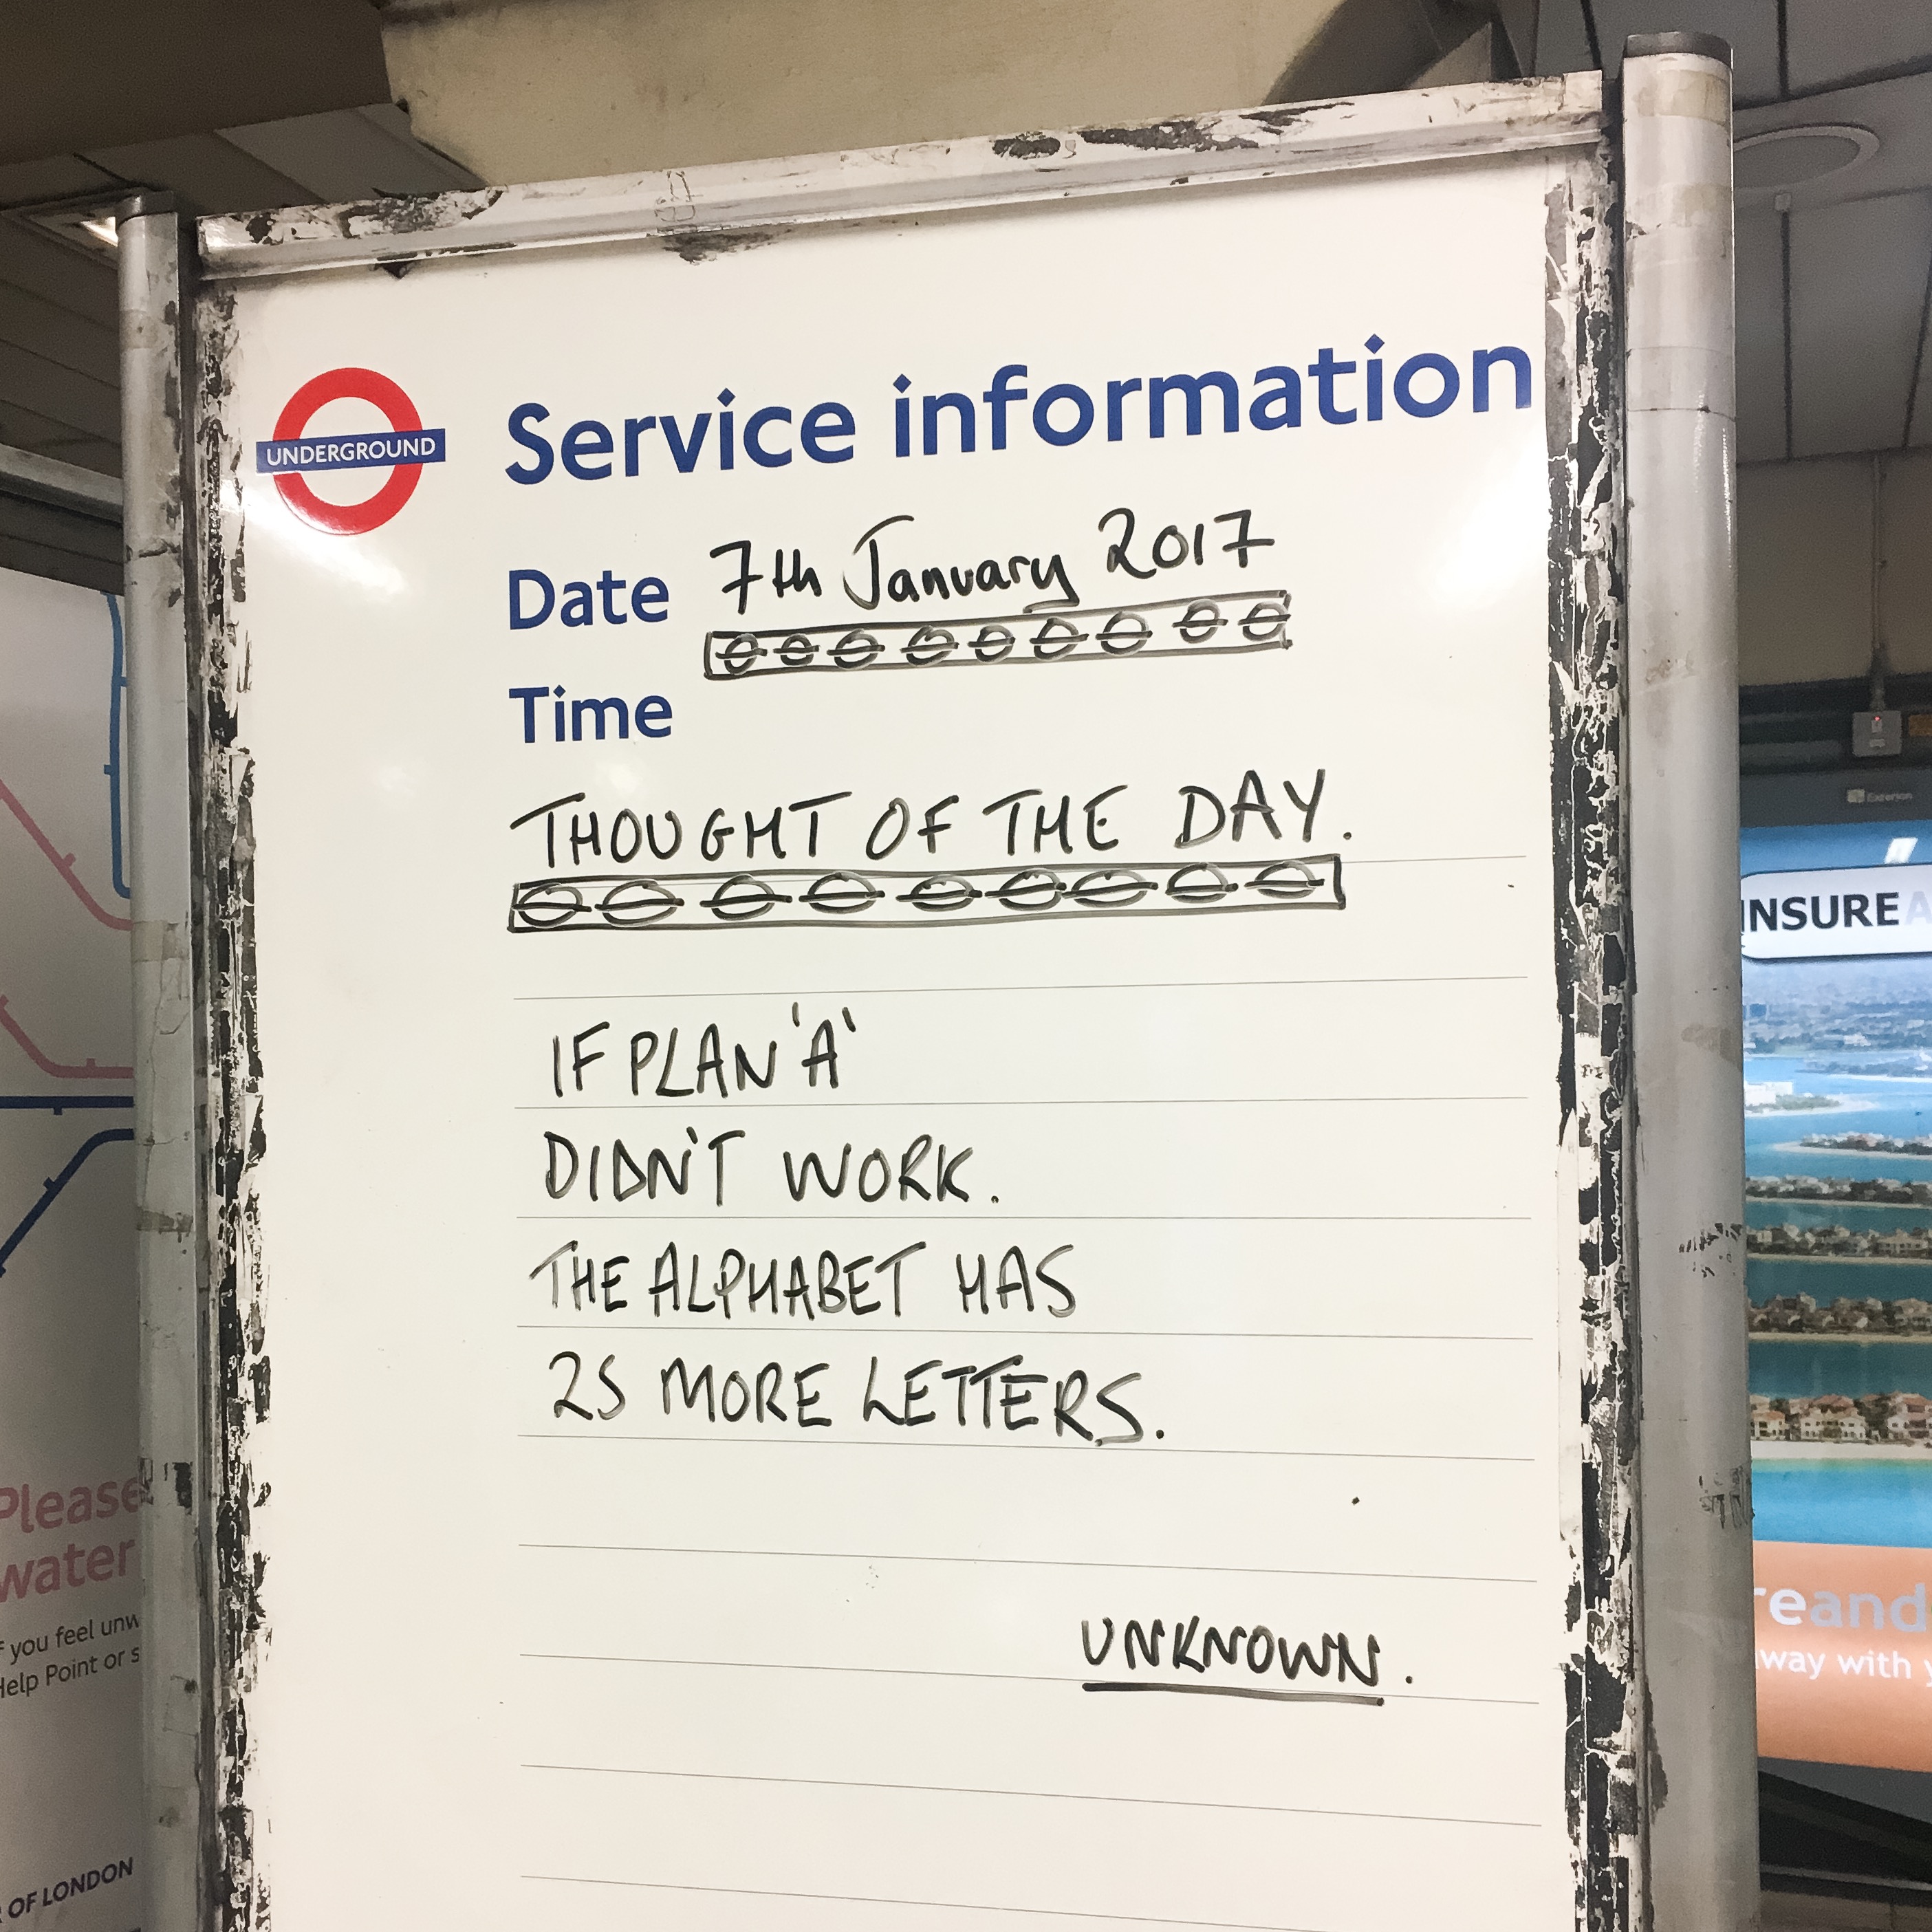 UNDERGROUND
Service information
Date 7th January 2017
Time
THOUGHT OF THE DAY.
IF PLAN 'A'
DIDN'T WORK.
THE ALPHABET HAS
25 MORE LETTERS.
UNKNOWN.
Please
water
f you feel unw
Help Point or s
OF LONDON
Exterion
INSUREA
reand
way with y